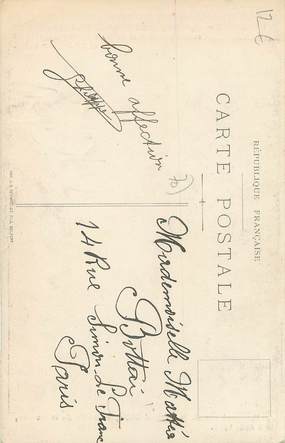 12 €
RÉPUBLIQUE FRANÇAISE
CARTE POSTALE
bonne affection
70
Mademoiselle
Bottai
14 Rue Simon Le Franc
Paris